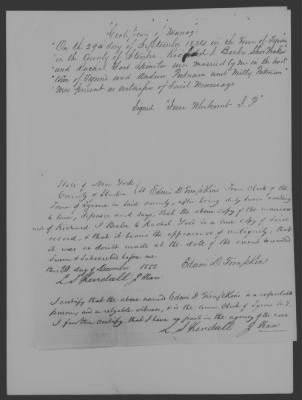 "Certificate of Marriage"
"On the 29th day of September 1824 in the Town of Tyrone
in the County of Steuben Richard J. Beebe Shoe Maker
and Rachel Spinster were married by me in the said
Town of Tyrone and Andrew Putnam and Milly Putnam
were present as witnesses of said marriage
Signed "Isaac J. P."
State of New York
County of Steuben Edwin D. Tompkins Town Clerk of the
Town of Tyrone in said county, after being duly sworn according
to law, deposes and says, that the above copy of the marriage
of Richard J. Beebe to Rachel is a true copy of said
record, & that it bears the appearance of antiquity, that
it was no doubt made at the date of the event recorded
Sworn & Subscribed before me
this day of December 1850
Edwin D. Tompkins
L. S. Kendall J. Peace
I certify that the above named Edwin D. Tompkins is a respectable
person, and a reliable witness, & is the Town Clerk of Tyrone N.Y.
I further certify that I have no interest in the agency of the case
L. S. Kendall J. Peace